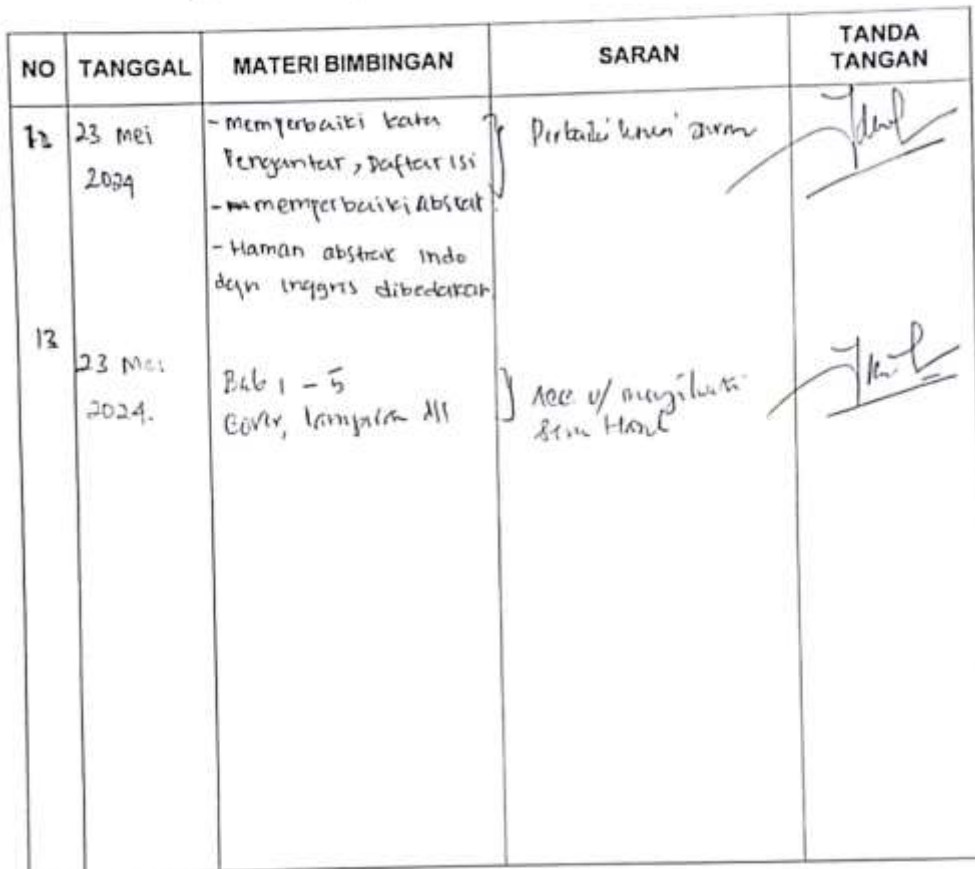 NO TANGGAL MATERI BIMBINGAN SARAN TANDA TANGAN
12 23 mei 2024
- memperbaiki kata
Pengantar, Daftar isi
- memperbaiki Abstrak
- Haman abstrak indo
dan inggris dibedakan
Perbaiki saran
13 23 Mei 2024.
Bab 1 - 5
Cover, lampiran dll
Acc u/ mengikuti
Sem Hasil